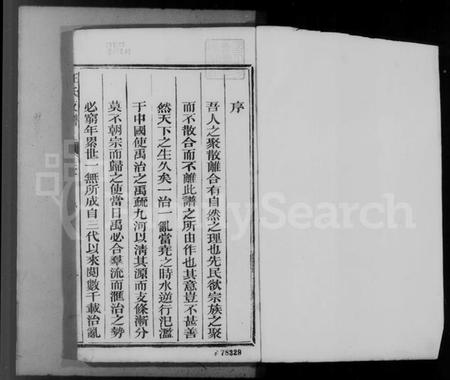 序
吾人之聚散離合有自然之理也先民欲宗族之聚
而不散合而不離此譜之所由作也其意豈不甚善
然天下之生久矣一治一亂當堯之時水逆行氾濫
于中國使禹治之禹疏九河以清其源而支條漸分
莫不朝宗而歸之使當日禹必合羣流而滙治之勢
必窮年累世一無所成自三代以來閱數千載治亂
78329
MySearch